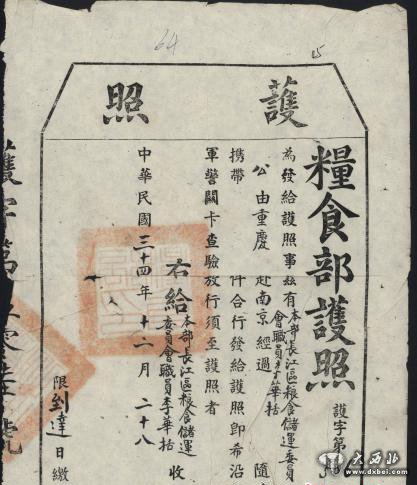 64
護照
糧食部護照
護字第
為發給護照事茲有本部長江區糧食儲運委員
會職員李華栝
公由重慶
赴南京經過
隨
携帶
件合行發給護照即希沿
軍警關卡查驗放行須至護照者
右給本部長江區糧食儲運
委員會職員李華栝
收
中華民國三十四年十二月二十八
限到達日繳
護字第
大西北
www.dxbei.com